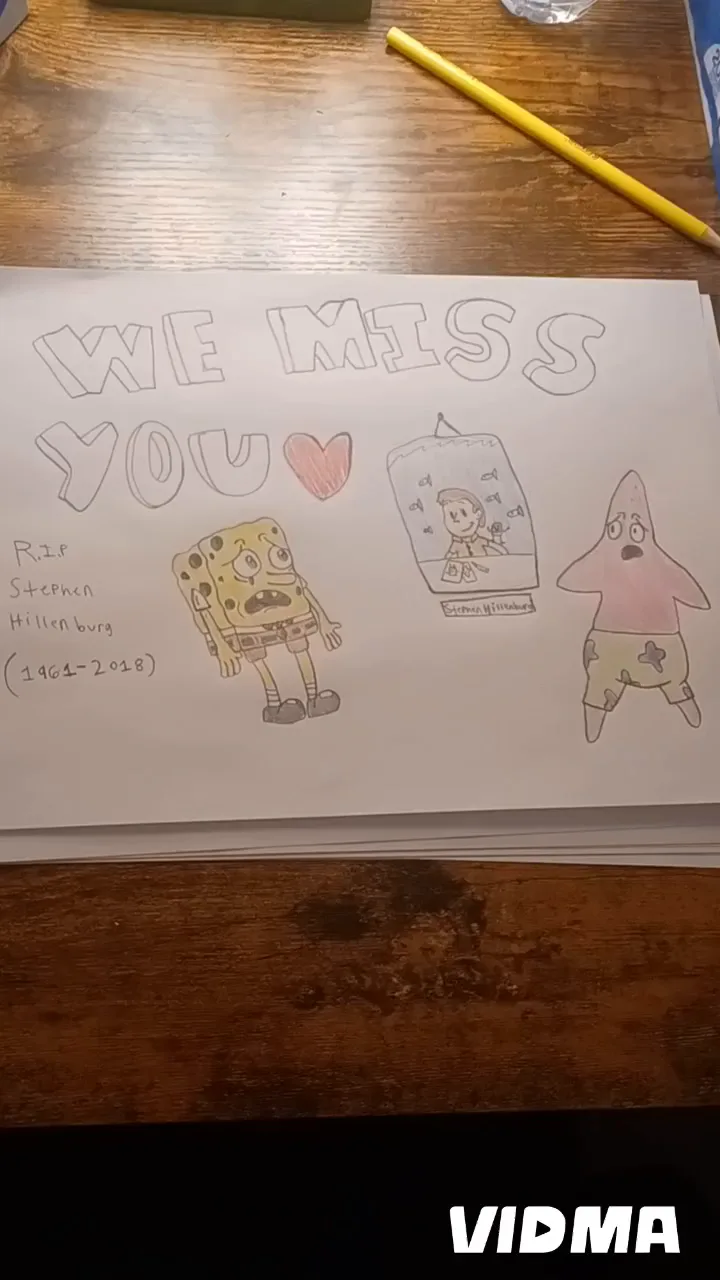 WE MISS
YOU
R.I.P
Stephen
Hillenburg
(1961-2018)
Stephen Hillenburg
VIDMA